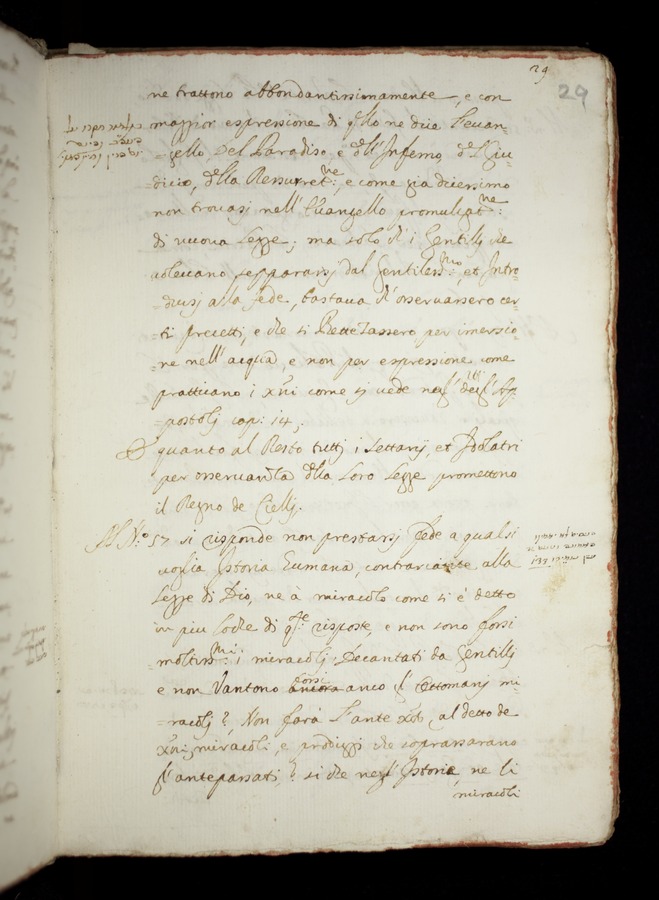 29
29
ne trattono abbondantissimamente, e con
maggior espressione di q̃llo ne dice l'euan-
=gello, del Paradiso, e dell'Inferno, del Giu-
=dicio, della Resurret.ne, e come gia dicessimo
non trouasj nell'Euangello promulgat.ne
di nuova legge; ma solo ch' i Gentilj che
voleuano sepparasj dal Gentiless.mo, et Intro-
=dursj alla fede, bastaua ch'osseruassero cer-
ti precetti, e che si Battezassero per imersio-
ne nell'acqua, e non per espressione come
pratticano i xñi come si vede negl'Atti degl'Ap-
postolj cap: 14.
E quanto al Resto tuttj i settarij, et Idolatri
per osseruanza della loro legge promettono
il Regno de Cielj.
Al N.o 57 si risponde non prestarsj fede a qualsi
voglia Istoria Eumana, contrariante alla
legge di Dio, ne à miracolo come si è detto
in piu lochi di q.te risposte, e non sono forsi
moltiss.mi i miracolj Decantati da Gentilj
e non Vantono forsi anco gl'Ottomanj mi-
=racolj? Non farà l'ante xp̃o, al detto de
xñi miracoli, e prodiggi che soprassarano
gl'antepassati? si che negl'Istorie, ne li
miracoli